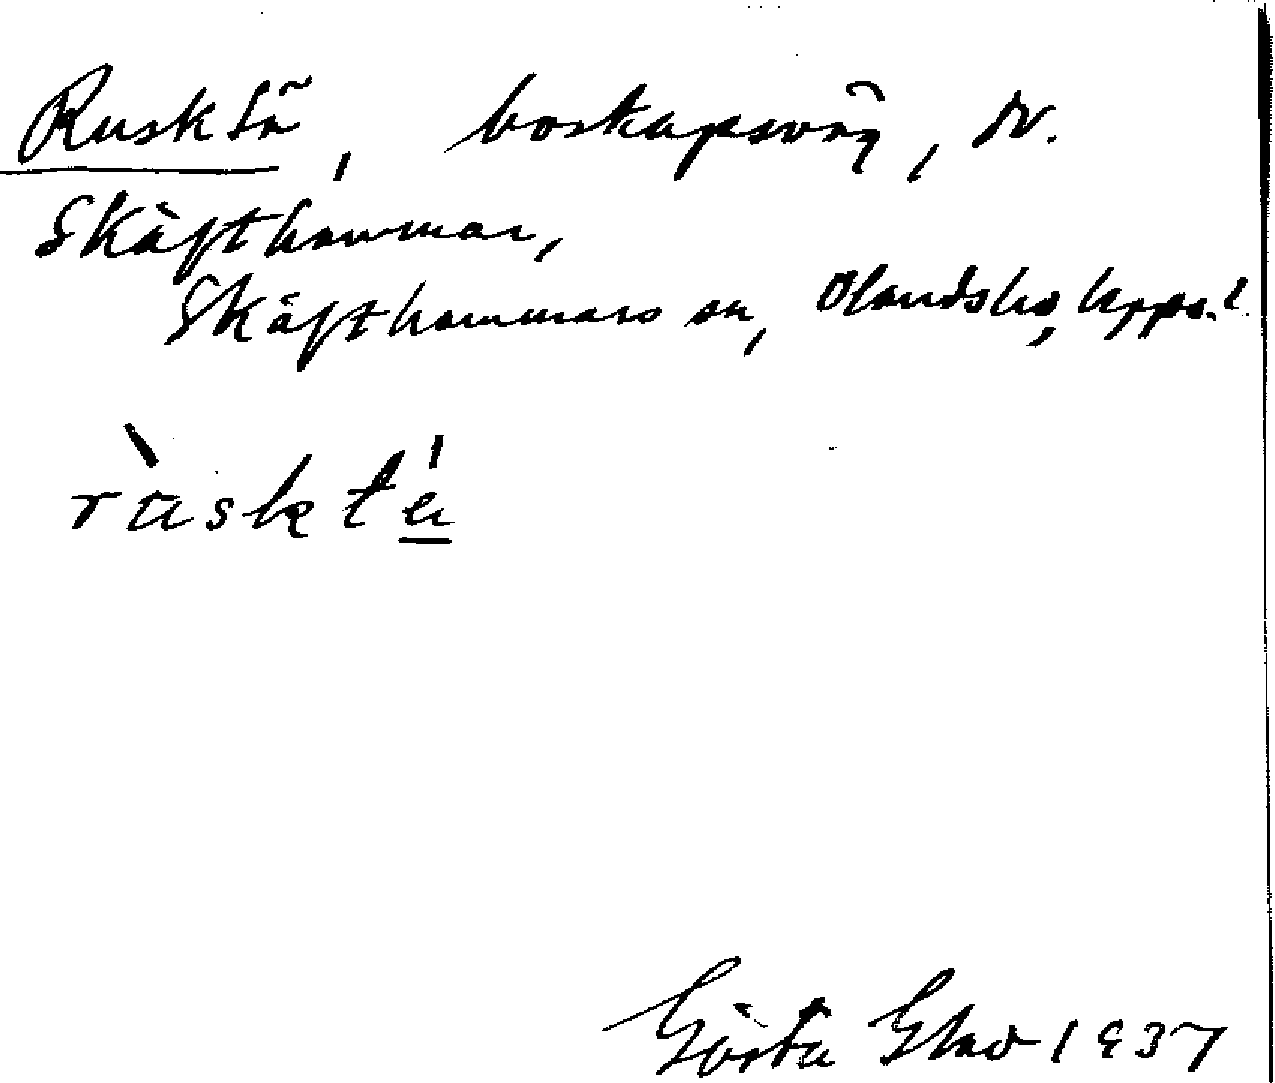 Rusktå, boskapsväg, N.
Skäfthammar,
Skäfthammars sn, Olandshd, Upps. l.
rusktå
Gösta Elav 1937